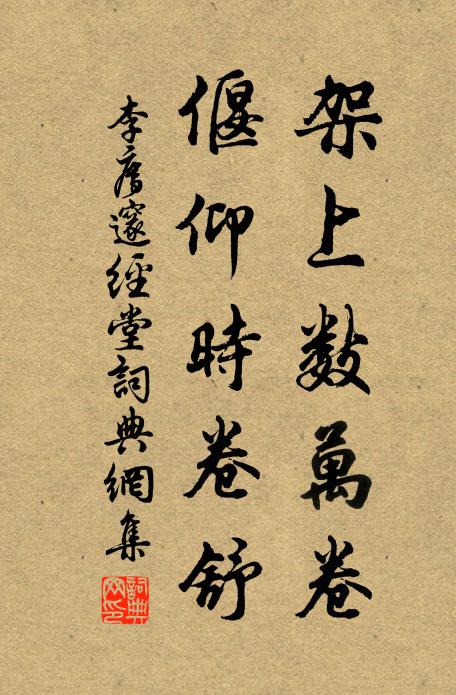 架上數萬卷
偃仰時卷舒
李廌邃經堂詞典網集
詞典网印